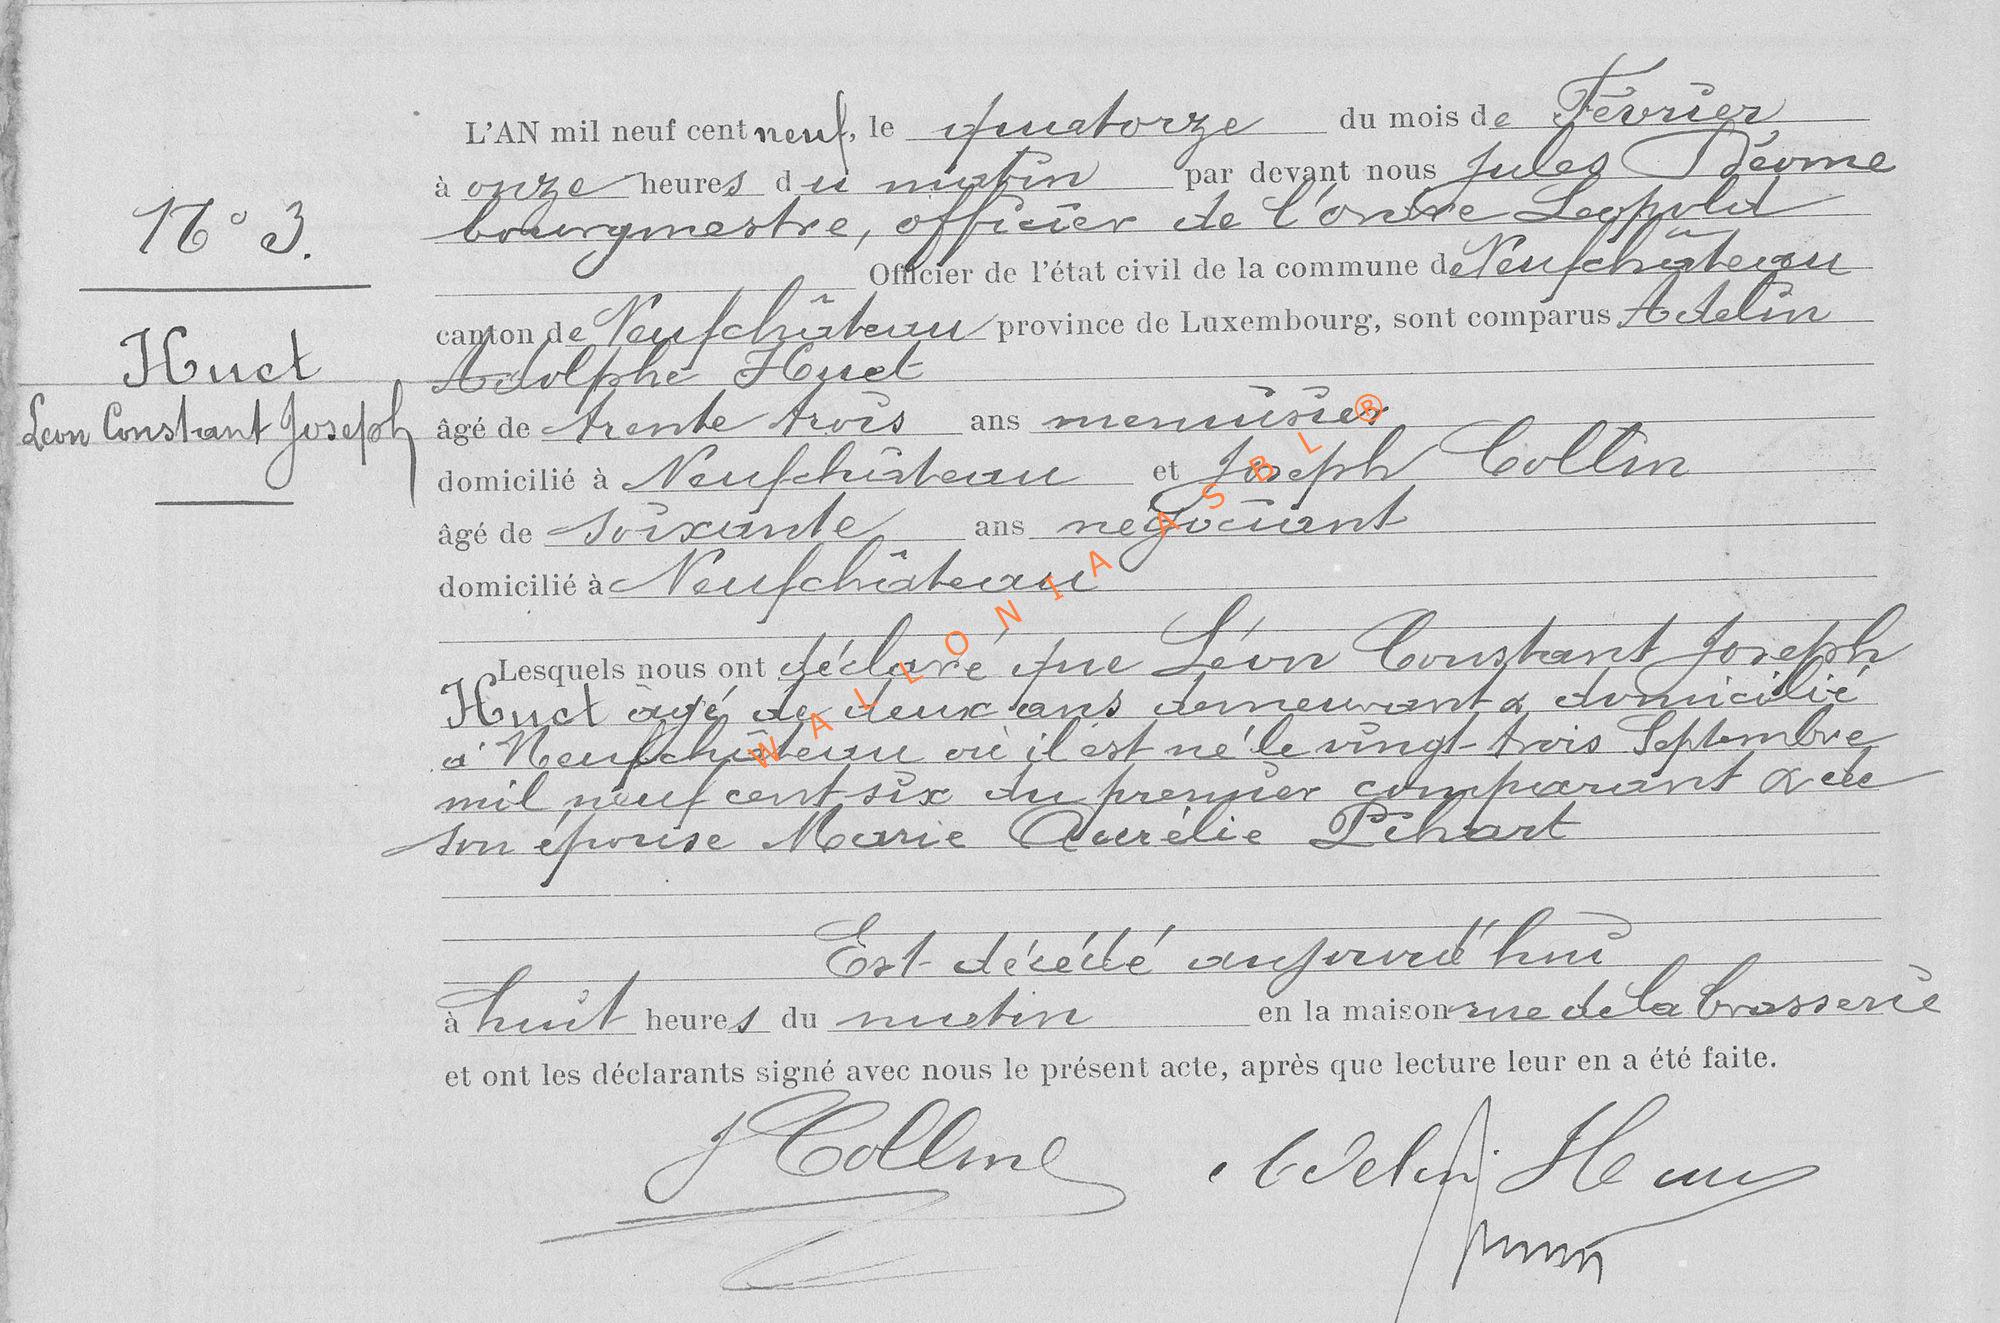 N° 3.
Huet
Léon Constant Joseph
L'AN mil neuf cent neuf, le quatorze du mois de Février
à onze heures du matin par devant nous Jules
bourgmestre, officier de l'ordre Léopold
Officier de l'état civil de la commune de Neufchâteau
canton de Neufchâteau province de Luxembourg, sont comparus Adelin
Adolphe Huet
âgé de trente trois ans menuisier
domicilié à Neufchâteau et Joseph Collin
âgé de soixante ans négociant
domicilié à Neufchâteau
Lesquels nous ont déclaré que Léon Constant Joseph
Huet âgé de deux ans demeurant & domicilié
à Neufchâteau où il est né le vingt-trois Septembre
mil neuf cent six du premier comparant & de
son épouse Marie Aurélie
Est décédé aujourd'hui
à huit heures du matin en la maison rue de la brasserie
et ont les déclarants signé avec nous le présent acte, après que lecture leur en a été faite.
J Collin
Adelin Huet
WALLONIA ASBL ®